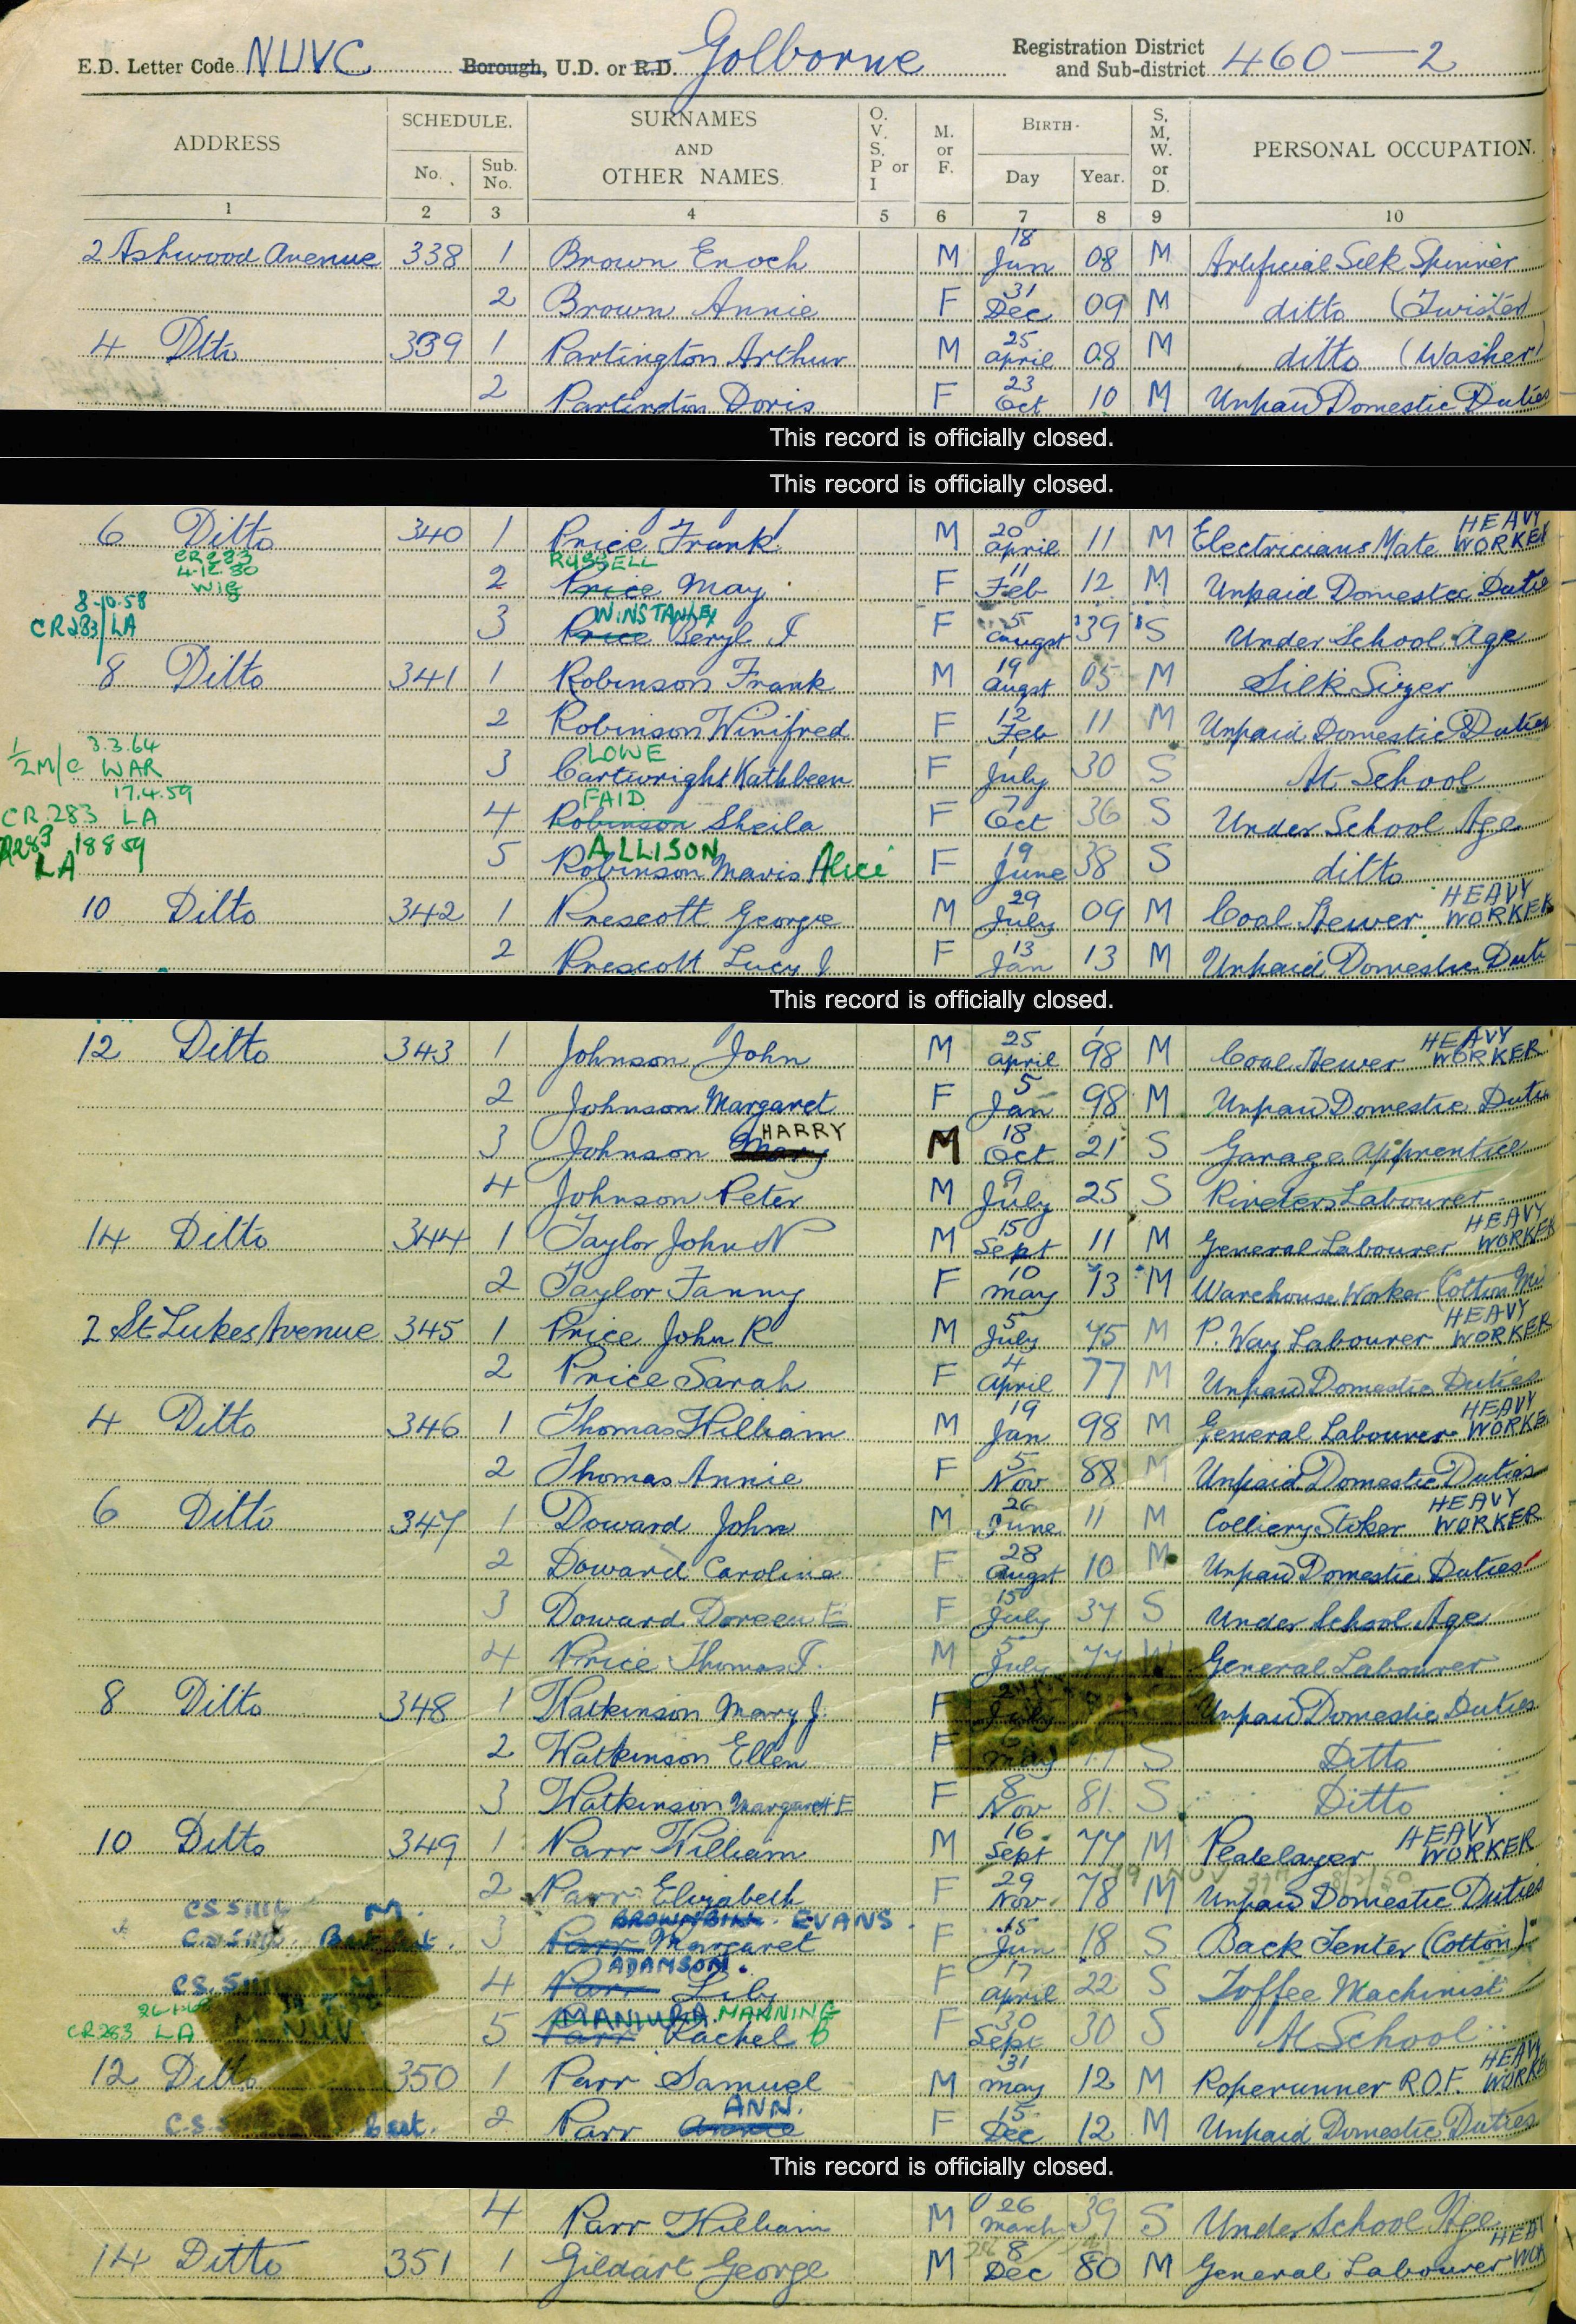 E.D. Letter Code NUVC Borough, U.D. or R.D. Golborne Registration District and Sub-district 460—2
ADDRESS SCHEDULE. SURNAMES AND OTHER NAMES. O. V. S. P or I M. or F. BIRTH. S, M, W. or D. PERSONAL OCCUPATION.
No. Sub. No. Day Year.
1 2 3 4 5 6 7 8 9 10
2 Ashwood Avenue 338 1 Brown Enoch M 18 Jan 08 M Artificial Silk Spinner
2 Brown Annie F 31 Dec 09 M ditto (Twister)
4 Dtto 339 1 Partington Arthur M 25 April 08 M ditto (Washer)
2 Partington Doris F 23 Oct 10 M Unpaid Domestic Duties
This record is officially closed.
This record is officially closed.
6 Ditto 340 1 Price Frank M 20 April 11 M Electricians Mate HEAVY WORKER
CR283 4.12.80 WIG 2 Price RUSSELL May F 11 Feb 12 M Unpaid Domestic Dutie
8.10.58 CR283/LA 3 Price WINSTANLEY Beryl I F 5 Augst 39 S Under School Age
8 Ditto 341 1 Robinson Frank M 19 Augst 05 M Silk Sizer
2 Robinson Winifred F 12 Feb 11 M Unpaid Domestic Duties
1/2 M/C 3.3.64 WAR 3 Cartwright LOWE Kathleen F 1 July 30 S At School
17.4.59 CR.283 LA 4 Robinson FAID Sheila F 7 Oct 36 S Under School Age
R283 18859 LA 5 Robinson ALLISON Mavis Alice F 19 June 38 S ditto
10 Ditto 342 1 Prescott George M 29 July 09 M Coal Hewer HEAVY WORKER
2 Prescott Lucy J F 13 Jan 13 M Unpaid Domestic Duti
This record is officially closed.
12 Ditto 343 1 Johnson John M 25 April 98 M Coal Hewer HEAVY WORKER
2 Johnson Margaret F 5 Jan 98 M Unpaid Domestic Dutie
3 Johnson Mary HARRY M 18 Oct 21 S Garage Apprentice
4 Johnson Peter M 9 July 25 S Riveters Labourer
14 Ditto 344 1 Taylor John N M 15 Sept 11 M General Labourer HEAVY WORKER
2 Taylor Fanny F 10 May 13 M Warehouse Worker (Cotton Mi
2 St Lukes Avenue 345 1 Price John R M 5 July 75 M P. Way Labourer HEAVY WORKER
2 Price Sarah F 4 April 77 M Unpaid Domestic Duties
4 Ditto 346 1 Thomas William M 19 Jan 98 M General Labourer HEAVY WORKER
2 Thomas Annie F 5 Nov 88 M Unpaid Domestic Duties
6 Ditto 347 1 Doward John M 26 June 11 M Colliery Stoker HEAVY WORKER
2 Doward Caroline F 28 Augst 10 M Unpaid Domestic Duties
3 Doward Doreen E F 15 July 37 S Under School Age
4 Price Thomas J. M 5 July 77 W General Labourer
8 Ditto 348 1 Watkinson Mary J. F July Unpaid Domestic Duties
2 Watkinson Ellen F May S Ditto
3 Watkinson Margaret E F 8 Nov 81 S Ditto
10 Ditto 349 1 Parr William M 16 Sept 77 M Platelayer HEAVY WORKER
2 Parr Elizabeth F 29 Nov 78 M Unpaid Domestic Duties
3 Parr BROWNBILL EVANS Margaret F 15 Jun 18 S Back Tenter (Cotton)
4 Parr ADAMSON. Lily F 17 April 22 S Toffee Machinist
CR283 LA NUV 5 Parr MANIURA MANNING Rachel B F 30 Sept 30 S At School
12 Ditto 350 1 Parr Samuel M 31 May 12 M Roperunner R.O.F. HEAVY WORKER
2 Parr Annie ANN. F 15 Dec 12 M Unpaid Domestic Duties
This record is officially closed.
4 Parr William M 26 March 39 S Under School Age
14 Ditto 351 1 Gildart George M 8 Dec 80 M General Labourer HEAVY WOR